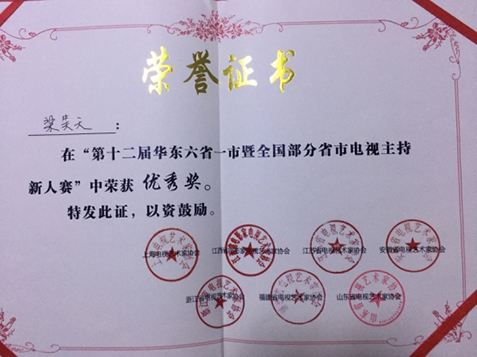 荣誉证书
梁昊天：
在“第十二届华东六省一市暨全国部分省市电视主持
新人赛”中荣获 优秀奖。
特发此证，以资鼓励。
上海电视艺术家协会 江西省电视艺术家协会 江苏省电视艺术家协会 安徽省电视艺术家协会
浙江省电视艺术家协会 福建省电视艺术家协会 山东省电视艺术家协会